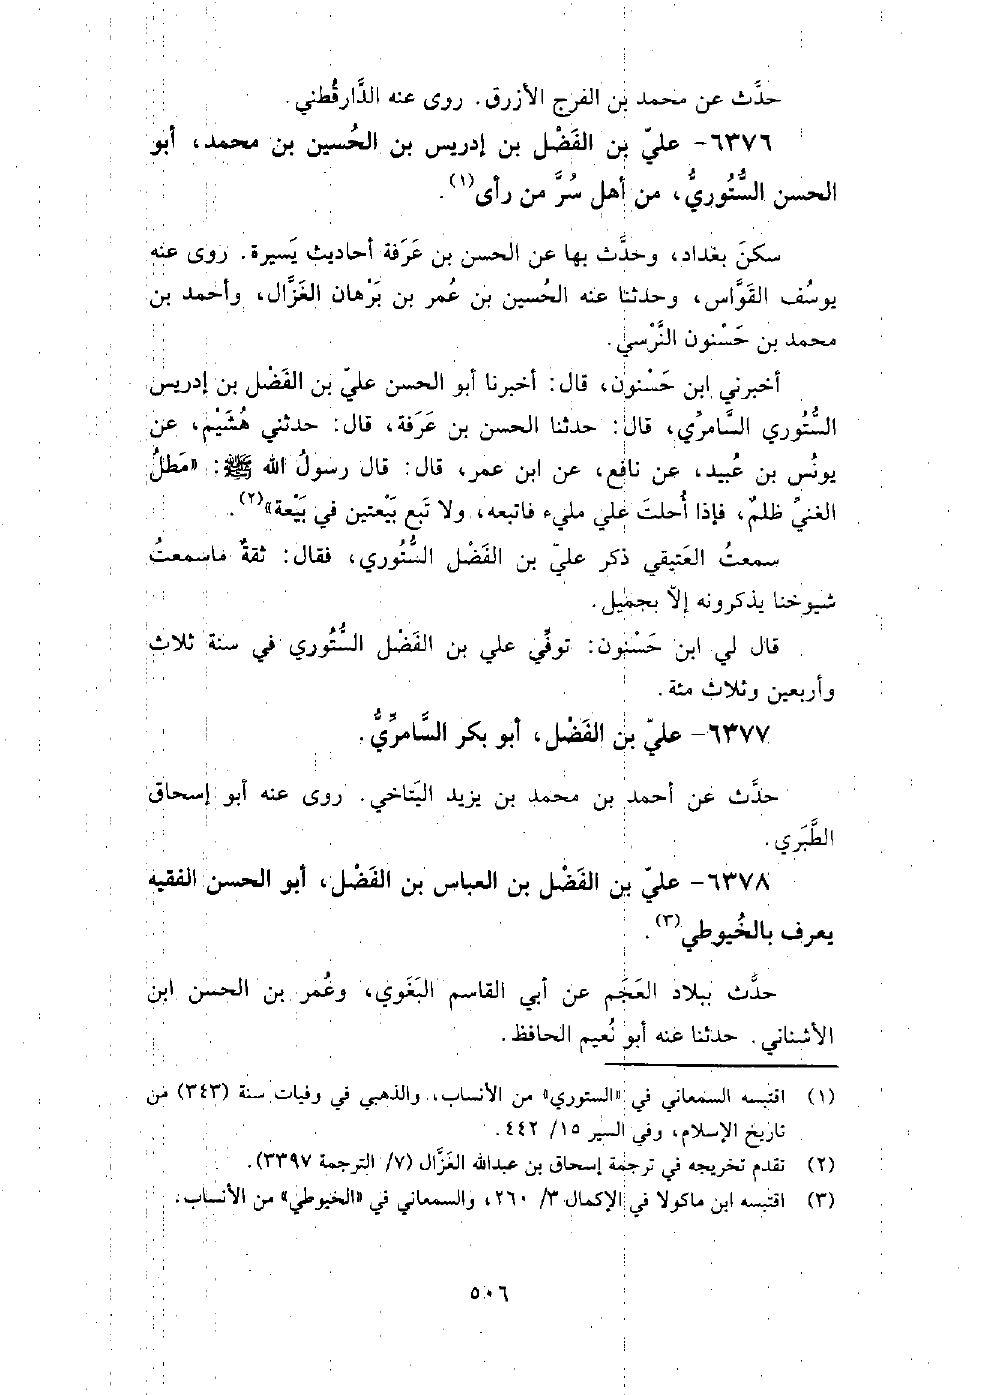 حدَّث عن محمد بن الفرج الأزرق. روى عنه الدَّارقُطني.
٦٣٧٦- عليّ بن الفَضْل بن إدريس بن الحُسين بن محمد، أبو
الحسن السُّتُوريُّ، من أهل سُرَّ من رأى(١).
سكنَ بغداد، وحدَّث بها عن الحسن بن عَرَفة أحاديث يَسيرة. روى عنه
يوسُف القَوَّاس، وحدثنا عنه الحُسين بن عُمر بن بَرْهان الغَزَّال، وأحمد بن
محمد بن حَسْنون النَّرْسي.
أخبرني ابن حَسْنون، قال: أخبرنا أبو الحسن عليّ بن الفَضْل بن إدريس
السُّتُوري السَّامرِّي، قال: حدثنا الحسن بن عَرَفة، قال: حدثني هُشَيْم، عن
يونُس بن عُبيد، عن نافع، عن ابن عمر، قال: قال رسولُ الله ﷺ: «مَطلُ
الغنيِّ ظلمٌ، فإذا أُحلتَ علي مليء فاتبعه، ولا تَبع بَيْعتين في بَيْعة»(٢).
سمعتُ العَتيقي ذكر عليّ بن الفَضْل السُّتُوري، فقال: ثقةٌ ماسمعتُ
شيوخنا يذكرونه إلاّ بجميل.
قال لي ابن حَسْنون: توفِّي علي بن الفَضْل السُّتُوري في سنة ثلاث
وأربعين وثلاث مئة.
٦٣٧٧- عليّ بن الفَضْل، أبو بكر السَّامرِّيُّ.
حدَّث عن أحمد بن محمد بن يزيد اليَتاخي. روى عنه أبو إسحاق
الطَّبَري.
٦٣٧٨- عليّ بن الفَضْل بن العباس بن الفَضْل، أبو الحسن الفقيه
يعرف بالخُيوطي(٣).
حدَّث ببلاد العَجَم عن أبي القاسم البَغَوي، وعُمر بن الحسن ابن
الأشناني. حدثنا عنه أبو نُعيم الحافظ.
(١) اقتبسه السمعاني في «الستوري» من الأنساب، والذهبي في وفيات سنة (٣٤٣) من
تاريخ الإسلام، وفي السير ١٥/ ٤٤٢.
(٢) تقدم تخريجه في ترجمة إسحاق بن عبدالله الغَزَّال (٧/ الترجمة ٣٣٩٧).
(٣) اقتبسه ابن ماكولا في الإكمال ٣/ ٢٦٠، والسمعاني في «الخيوطي» من الأنساب.
٥٠٦